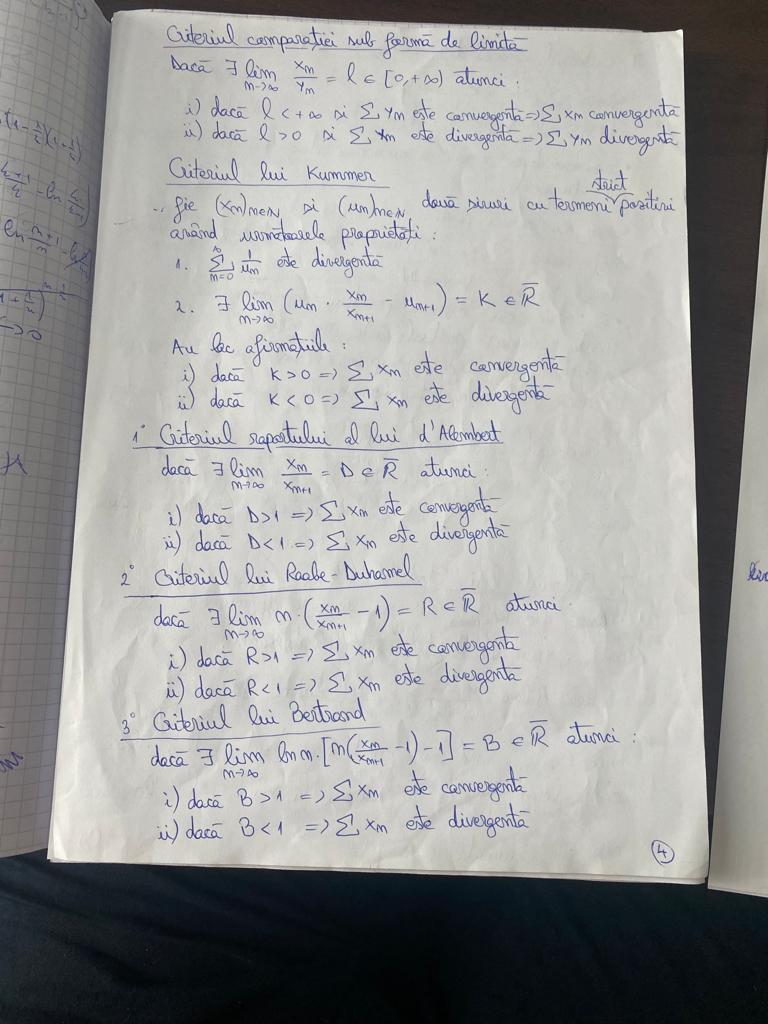 Criteriul comparației sub formă de limită
Dacă ∃ lim n→∞ xn/yn = l ∈ [0,+∞) atunci:
i) dacă l < +∞ și ∑ yn este convergentă => ∑ xn convergentă
ii) dacă l > 0 și ∑ yn este divergentă => ∑ yn divergentă
Criteriul lui Kummer
fie (xn)n∈N și (un)n∈N două șiruri cu termeni strict pozitivi
având următoarele proprietăți:
1. ∑ n=0 ∞ 1/un este divergentă
2. ∃ lim n→∞ (un · xn/xn+1 - un+1) = K ∈ R̅
Au loc afirmațiile:
i) dacă K > 0 => ∑ xn este convergentă
ii) dacă K < 0 => ∑ xn este divergentă
1° Criteriul raportului al lui d'Alembert
dacă ∃ lim n→∞ xn/xn+1 = D ∈ R̅ atunci:
i) dacă D > 1 => ∑ xn este convergentă
ii) dacă D < 1 => ∑ xn este divergentă
2° Criteriul lui Raabe-Duhamel
dacă ∃ lim n→∞ n·(xn/xn+1 - 1) = R ∈ R̅ atunci:
i) dacă R > 1 => ∑ xn este convergentă
ii) dacă R < 1 => ∑ xn este divergentă
3° Criteriul lui Bertrand
dacă ∃ lim n→∞ ln n·[n(xn/xn+1 - 1) - 1] = B ∈ R̅ atunci:
i) dacă B > 1 => ∑ xn este convergentă
ii) dacă B < 1 => ∑ xn este divergentă
4